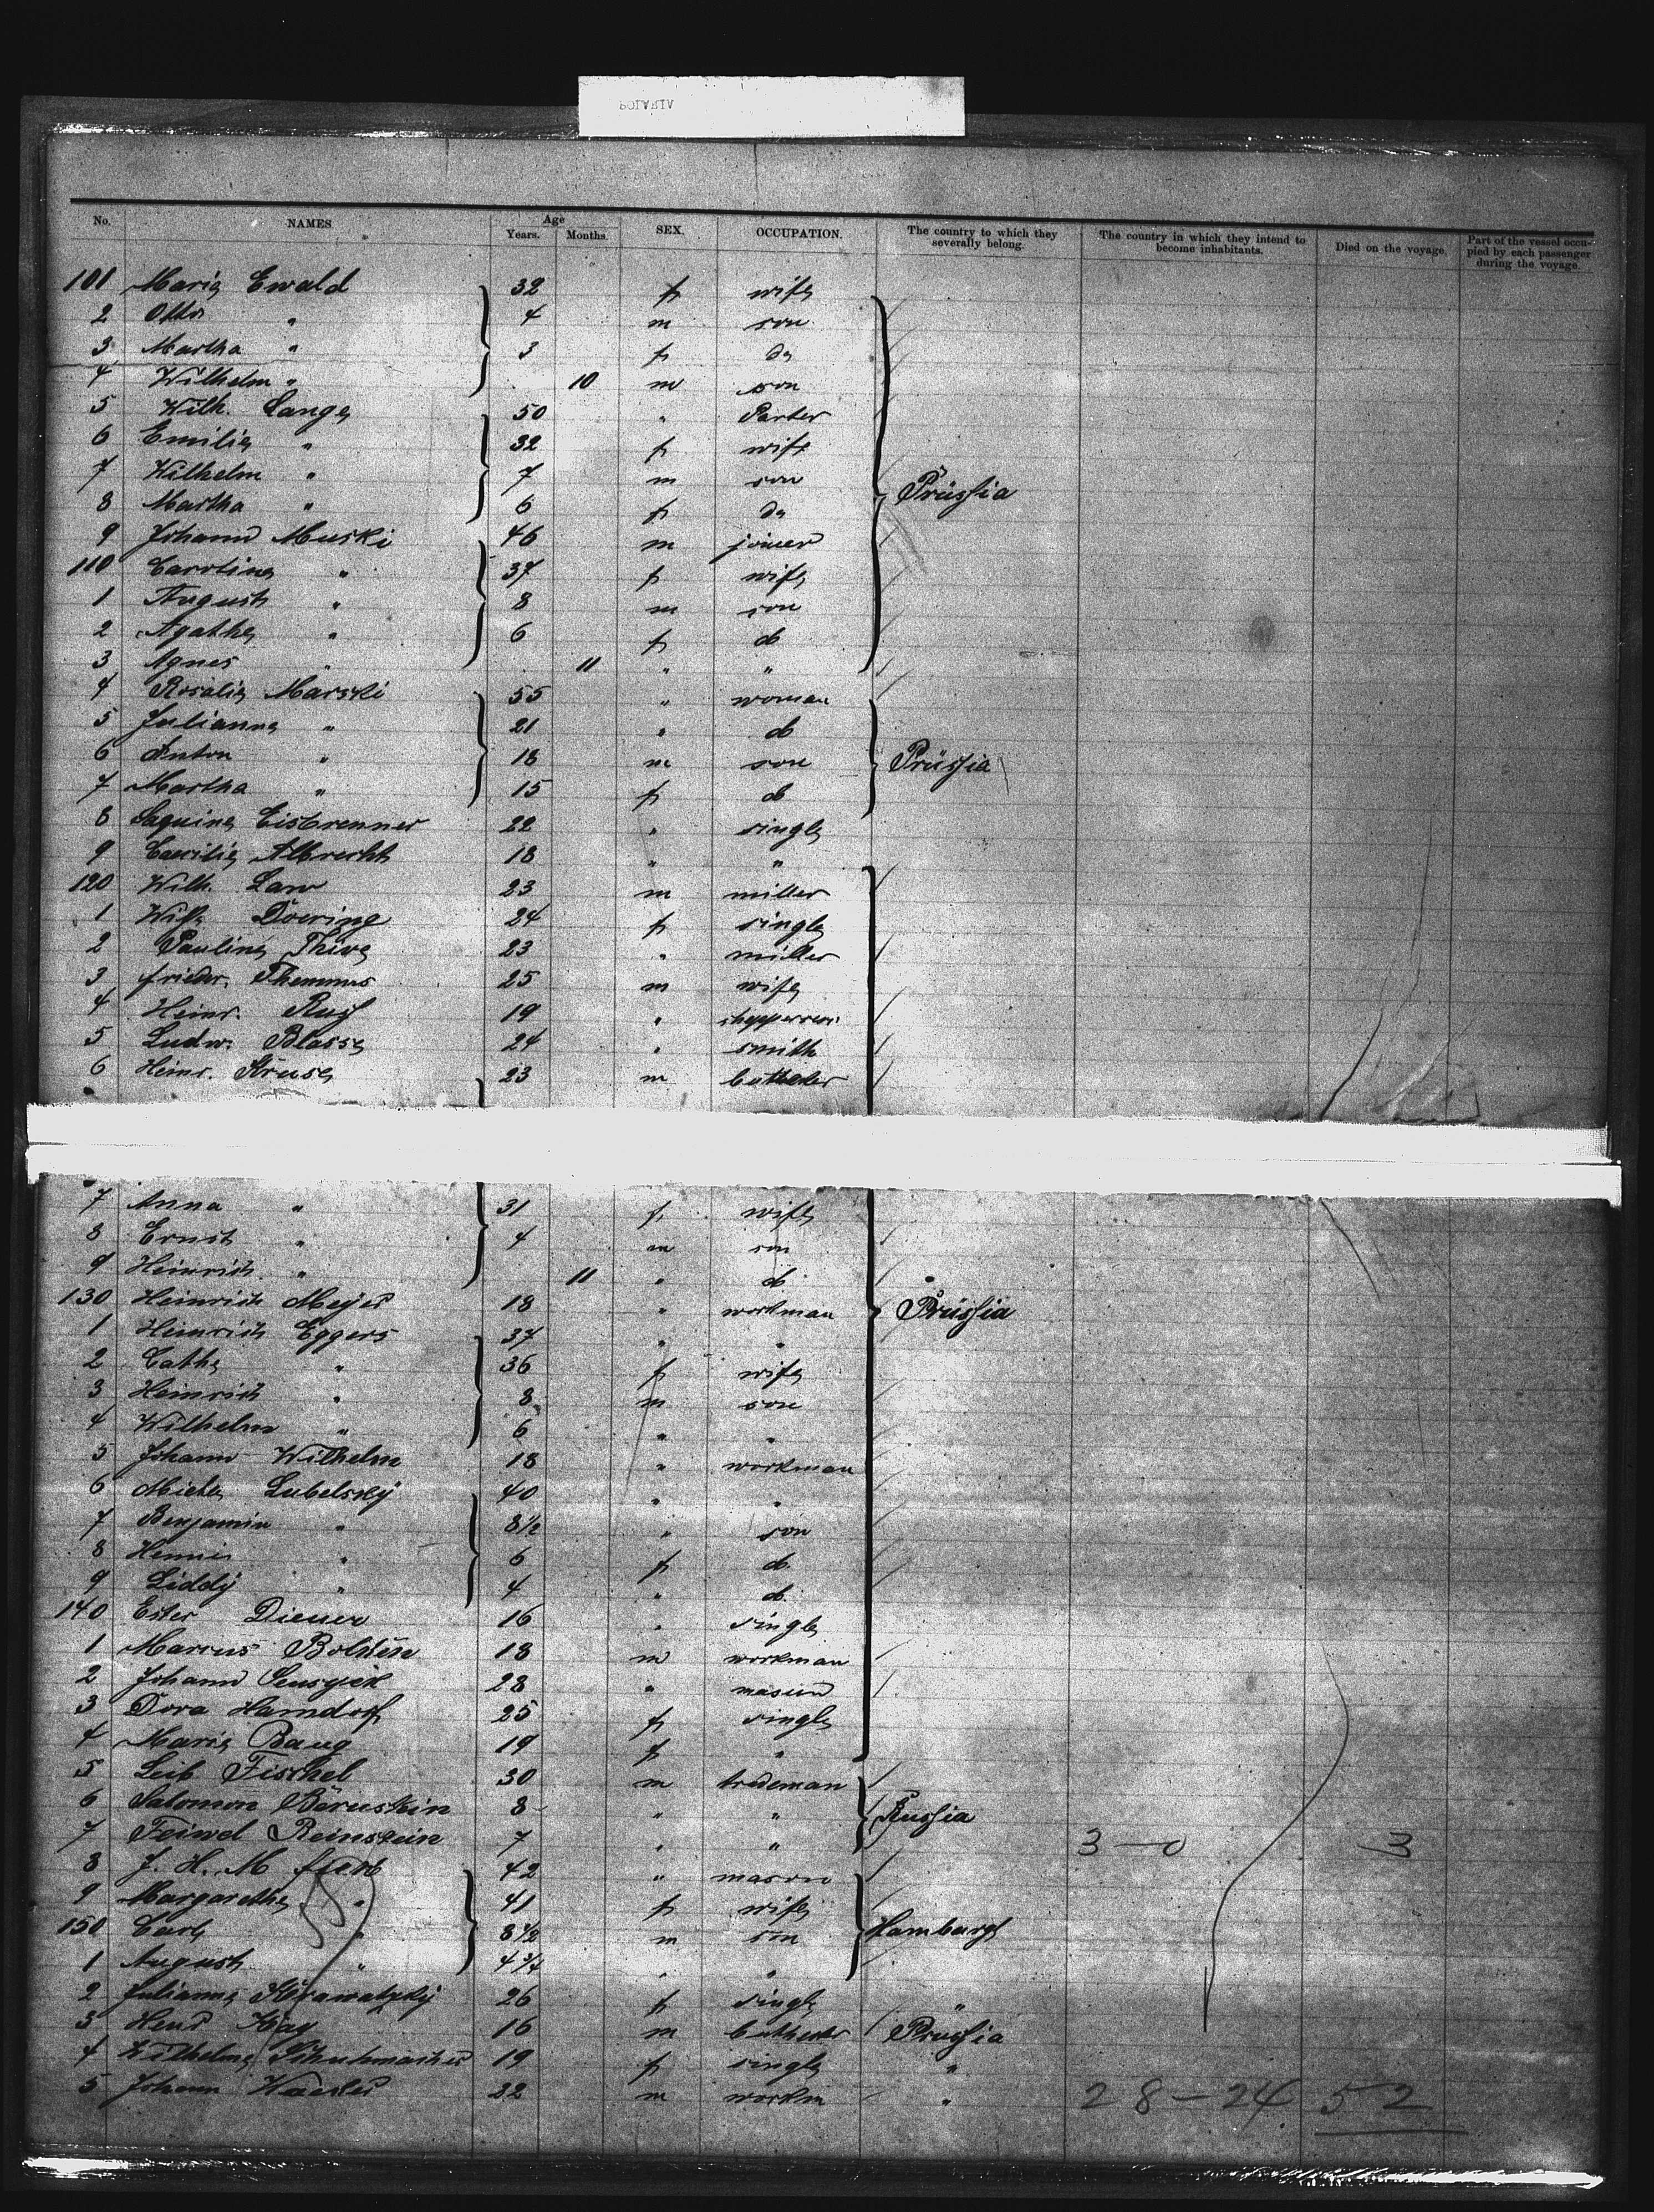 POLARIA
No. NAMES Age Years. Months. SEX. OCCUPATION. The country to which they severally belong. The country in which they intend to become inhabitants. Died on the voyage. Part of the vessel occupied by each passenger during the voyage.
101 Maria Ewald 32 f wife
2 Otto " 4 m son
3 Martha " 3 f do
4 Wilhelm " 10 m son
5 Wilh. Lange 50 "
6 Emilie " 32 f wife
7 Wilhelm " 7 m son Prüssia
8 Martha " 6 f do
9 Johann Muski 46 m joiner
110 Caroline " 37 f wife
1 August " 8 m son
2 Agathe " 6 f do
3 Agnes " 11 " "
4 Rosalie Marski 55 " woman
5 Julianna " 21 " do
6 Anton " 18 m son Prüssia
7 Martha " 15 f do
8 Eisbrenner 22 " single
9 Albrecht 18 " "
120 Wilh. 23 m miller
1 Doering 24 f single
2 Pauline 23 " miller
3 Friedr. 25 m wife
4 Heinr. 19 "
5 Ludw. Blasse 24 " smith
6 Heinr. Kruse 23 m
7 Anna " 31 f wife
8 Ernst " 4 m son
9 Heinrich " 11 " do
130 Heinrich Meyer 18 " workman Prüssia
1 Heinrich Eggers 37 " "
2 Cathe " 36 f wife
3 Heinrich " 8 m son
4 Wilhelm " 6 " "
5 Johann Wilhelm 18 " workman
6 Lubelsky 40 " "
7 Benjamin " 8½ " son
8 " 6 f do
9 Liddy " 4 " do
140 Ester Diener 16 " single
1 Marcus 18 m workman
2 Johann 28 "
3 Dora Harndorf 25 f single
4 Maria 19 f "
5 Leib Fischel 30 m trademan
6 Salomon 8 " " Russia
7 Feiwel Reinstein 7 " " 3-0 3
8 J. H. M. 42 " mason
9 Margarethe " 41 f wife
150 Carl " 8½ m son Hamburg
1 August " 4¾ " "
2 Julianna 26 f single "
3 16 m Prussia
4 Wilhelmine Schuhmacher 19 f single "
5 Johann 22 m workm " 28-24 52